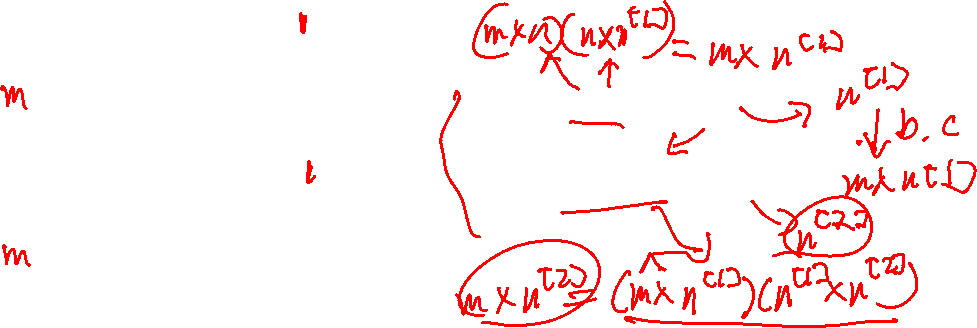 (m×n)(n×n^[1]) = m× n^[1]
m
n^[1]
b.c
m×n^[1]
n^[2]
m
m×n^[2] = (m×n^[1])(n^[1]×n^[2])